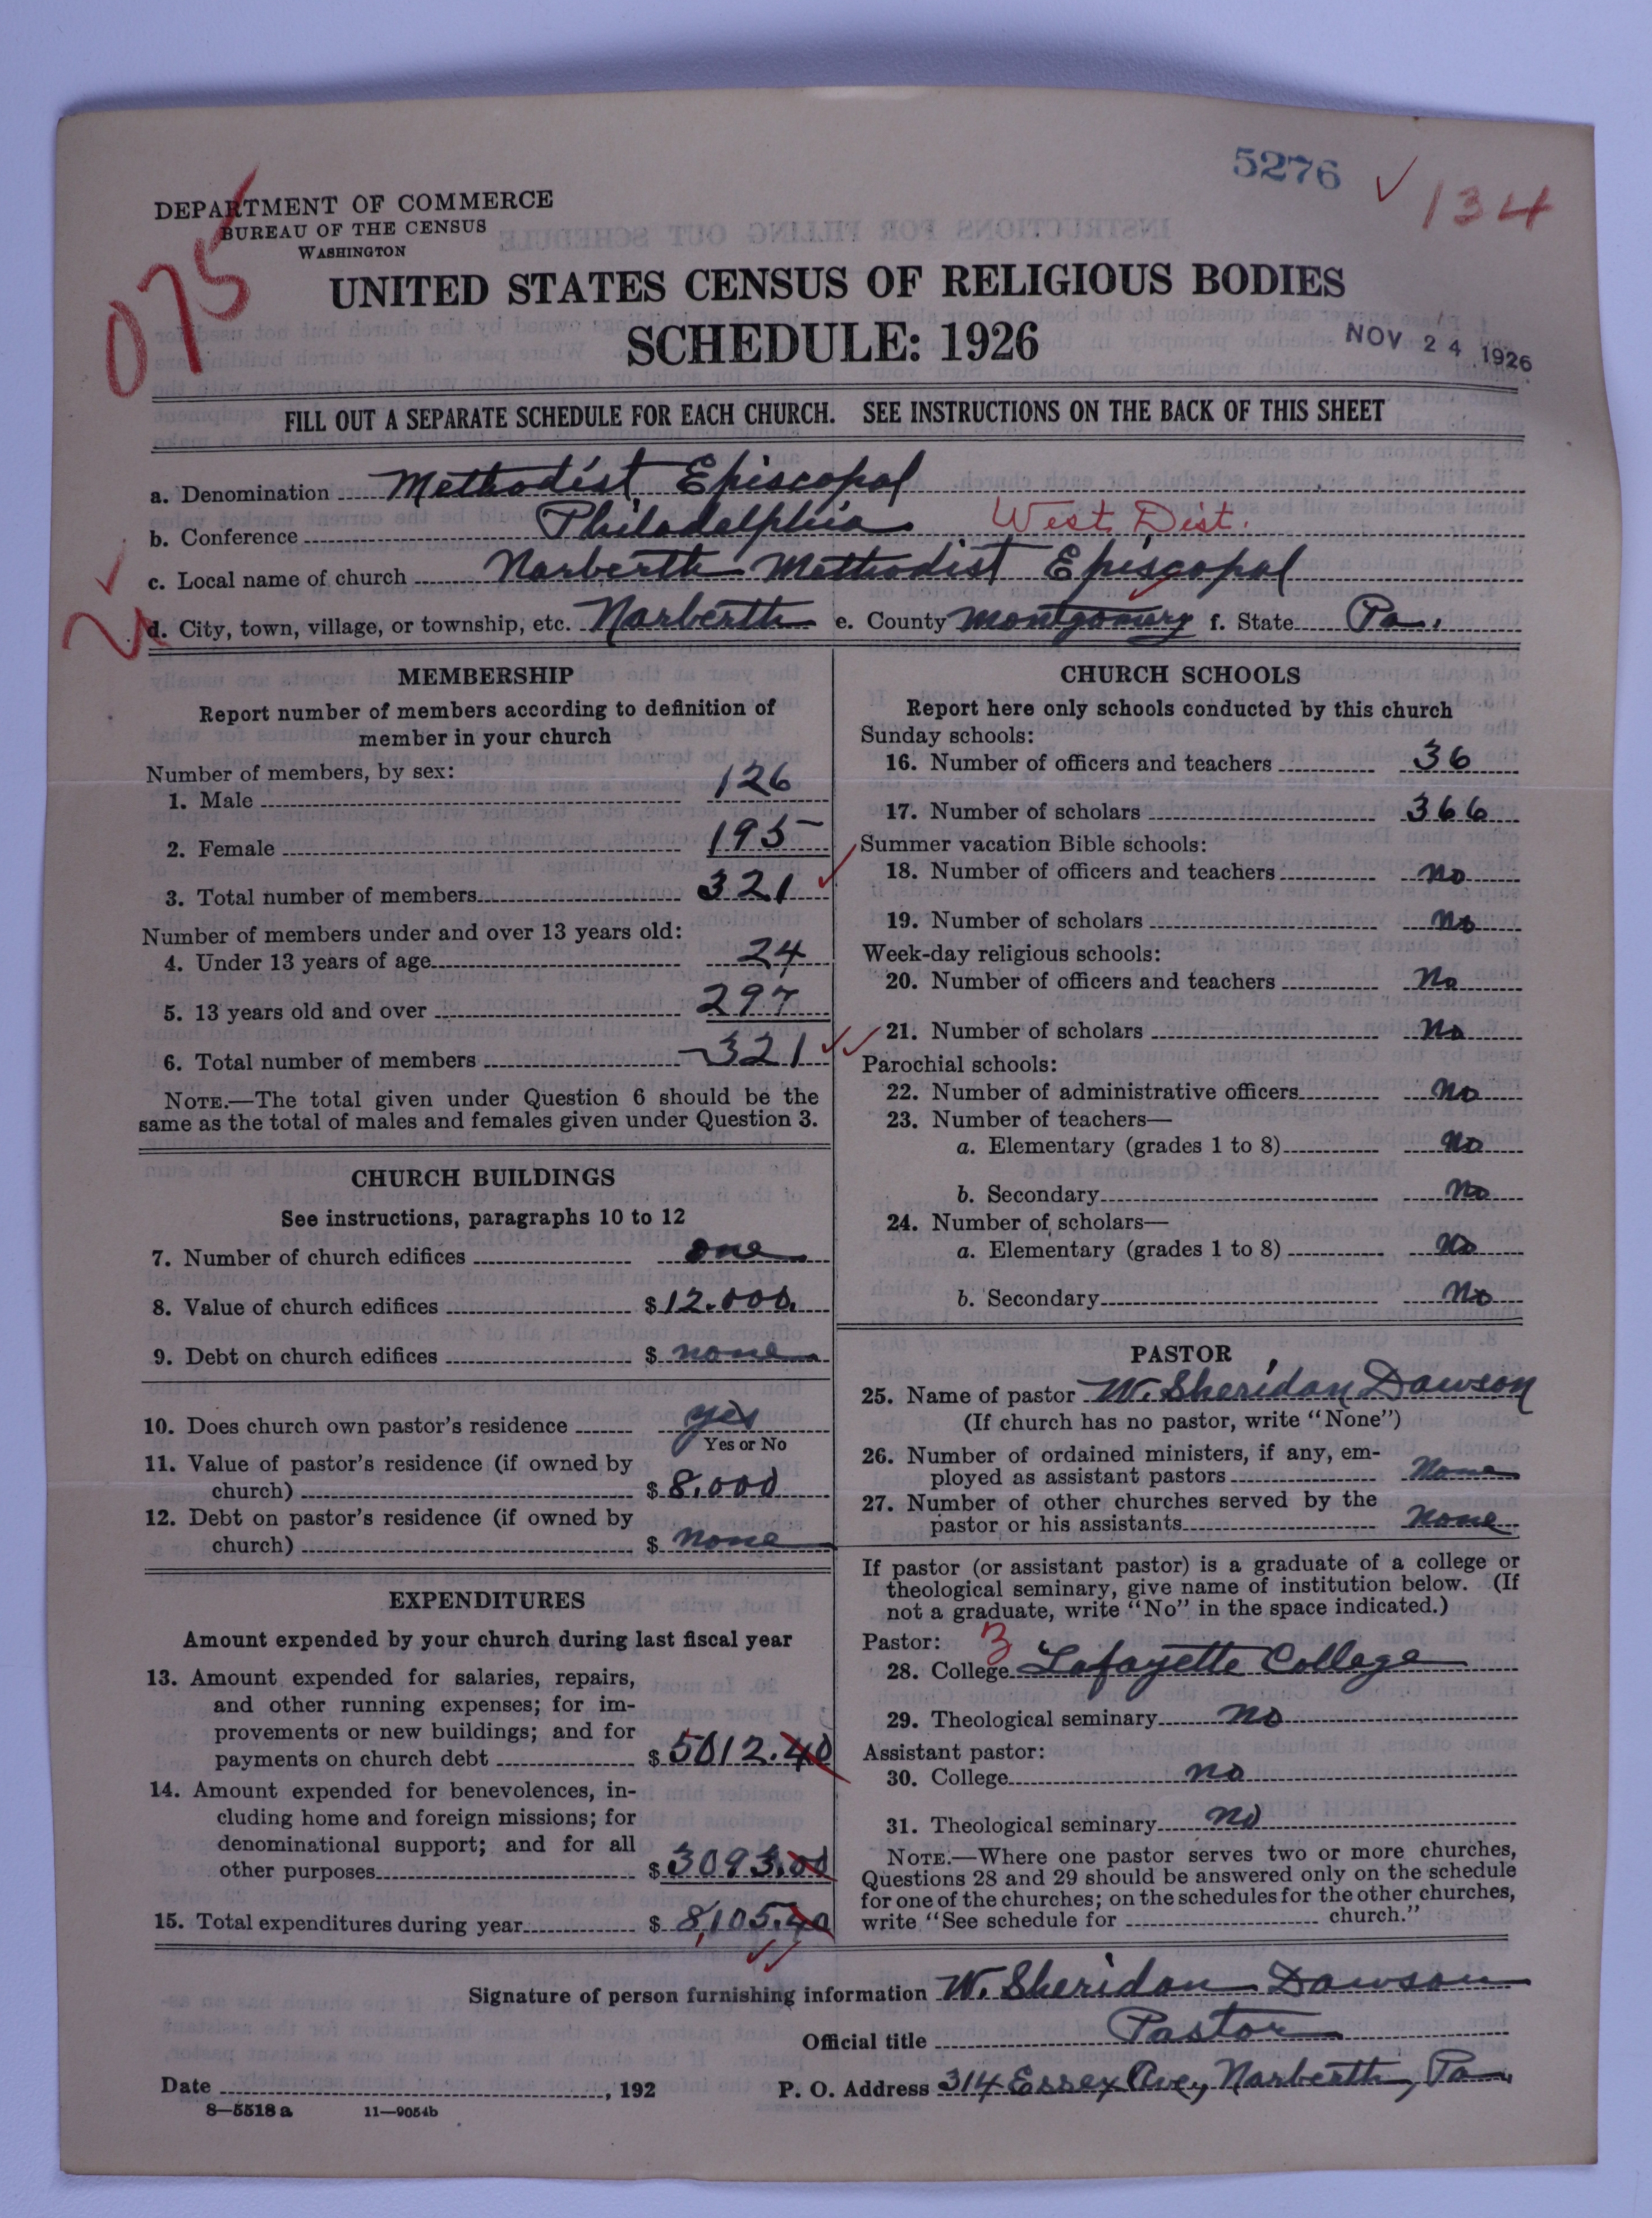 5276 ✓ 134
DEPARTMENT OF COMMERCE
BUREAU OF THE CENSUS
WASHINGTON
075
UNITED STATES CENSUS OF RELIGIOUS BODIES
SCHEDULE: 1926
NOV 24 1926
FILL OUT A SEPARATE SCHEDULE FOR EACH CHURCH. SEE INSTRUCTIONS ON THE BACK OF THIS SHEET
a. Denomination Methodist Episcopal
b. Conference Philadelphia West Dist.
c. Local name of church Narberth Methodist Episcopal
d. City, town, village, or township, etc. Narberth e. County Montgomery f. State Pa.
MEMBERSHIP
Report number of members according to definition of
member in your church
Number of members, by sex:
1. Male 126
2. Female 195
3. Total number of members 321
Number of members under and over 13 years old:
4. Under 13 years of age 24
5. 13 years old and over 297
6. Total number of members 321
NOTE.—The total given under Question 6 should be the
same as the total of males and females given under Question 3.
CHURCH BUILDINGS
See instructions, paragraphs 10 to 12
7. Number of church edifices one
8. Value of church edifices $ 12.000.
9. Debt on church edifices $ none
10. Does church own pastor's residence yes
Yes or No
11. Value of pastor's residence (if owned by
church) $ 8.000
12. Debt on pastor's residence (if owned by
church) $ none
EXPENDITURES
Amount expended by your church during last fiscal year
13. Amount expended for salaries, repairs,
and other running expenses; for im-
provements or new buildings; and for
payments on church debt $ 5012.40
14. Amount expended for benevolences, in-
cluding home and foreign missions; for
denominational support; and for all
other purposes $ 3093.00
15. Total expenditures during year $ 8,105.40
CHURCH SCHOOLS
Report here only schools conducted by this church
Sunday schools:
16. Number of officers and teachers 36
17. Number of scholars 366
Summer vacation Bible schools:
18. Number of officers and teachers no
19. Number of scholars no
Week-day religious schools:
20. Number of officers and teachers no
21. Number of scholars no
Parochial schools:
22. Number of administrative officers no
23. Number of teachers—
a. Elementary (grades 1 to 8) no
b. Secondary no
24. Number of scholars—
a. Elementary (grades 1 to 8) no
b. Secondary no
PASTOR
25. Name of pastor W. Sheridan Dawson
(If church has no pastor, write "None")
26. Number of ordained ministers, if any, em-
ployed as assistant pastors None
27. Number of other churches served by the
pastor or his assistants None
If pastor (or assistant pastor) is a graduate of a college or
theological seminary, give name of institution below. (If
not a graduate, write "No" in the space indicated.)
Pastor: 3
28. College Lafayette College
29. Theological seminary no
Assistant pastor:
30. College no
31. Theological seminary no
NOTE.—Where one pastor serves two or more churches,
Questions 28 and 29 should be answered only on the schedule
for one of the churches; on the schedules for the other churches,
write "See schedule for church."
Signature of person furnishing information W. Sheridan Dawson
Official title Pastor
Date , 192 P. O. Address 314 Essex Ave, Narberth, Pa.
8—5518 a 11—9054b